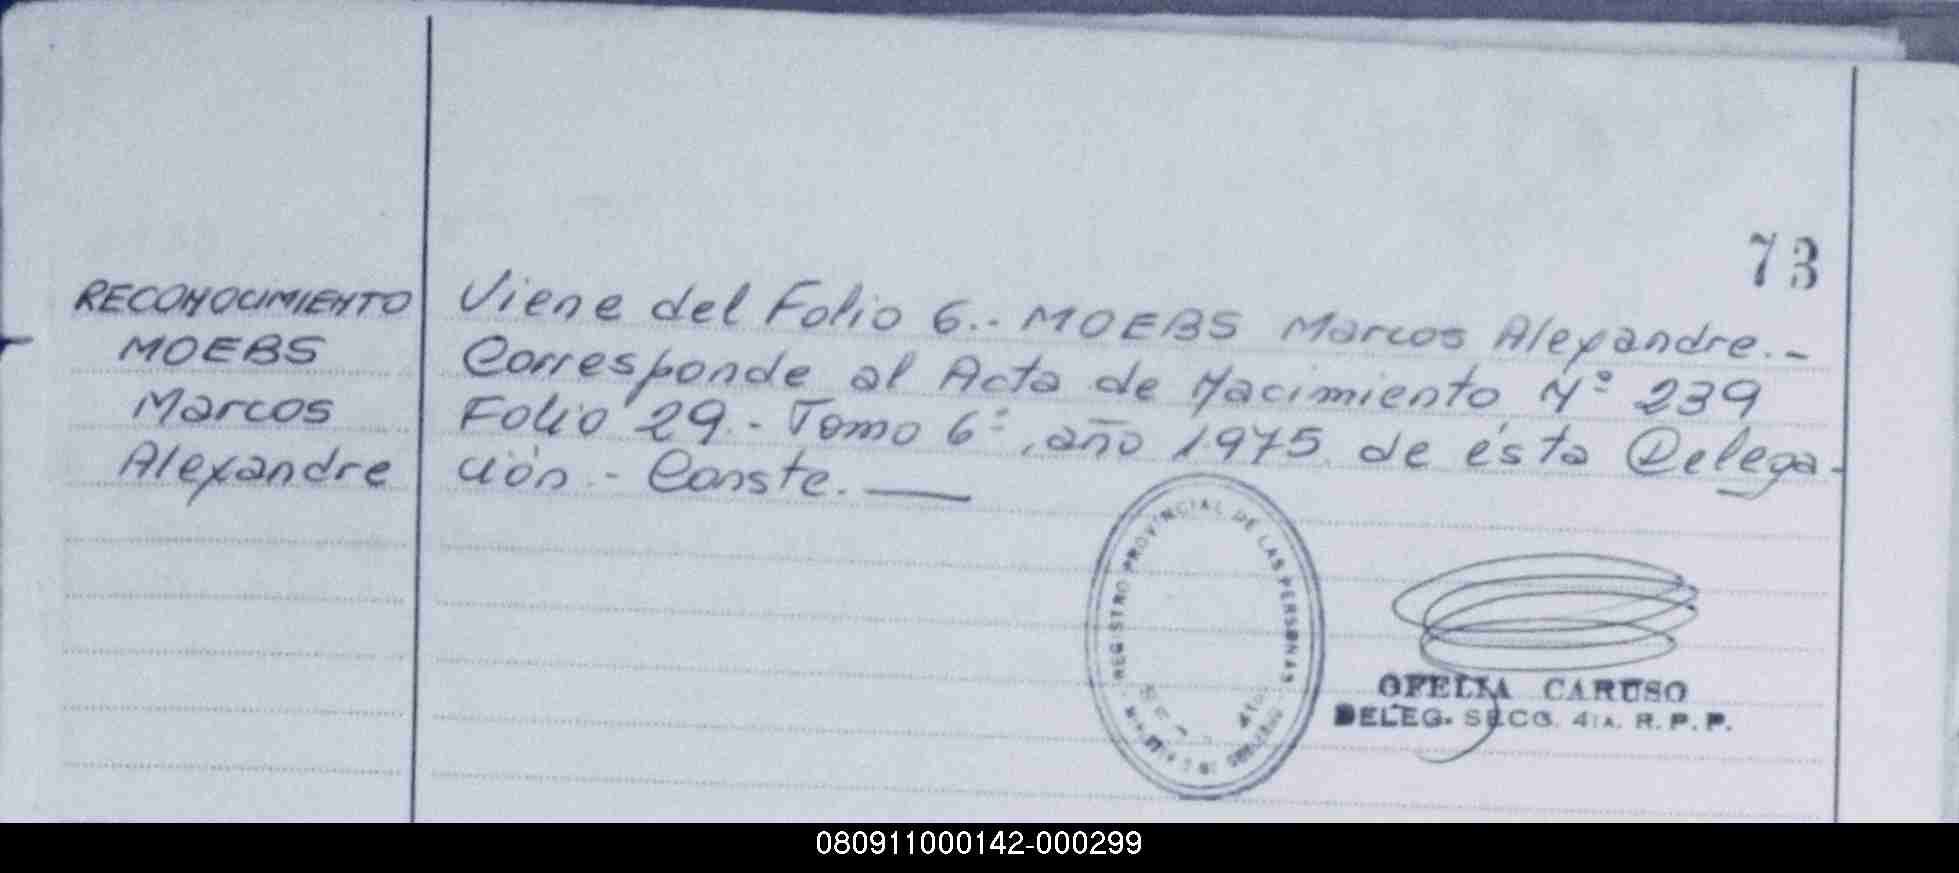 73
RECONOCIMIENTO
MOEBS
Marcos
Alexandre
Viene del Folio 6.- MOEBS Marcos Alexandre.-
Corresponde al Acta de Nacimiento Nº 239
Folio 29.- Tomo 6º, año 1975, de ésta Delega-
ción.- Conste.
REGISTRO PROVINCIAL DE LAS PERSONAS
OFELIA CARUSO
DELEG. SECC. 4TA. R. P. P.
080911000142-000299